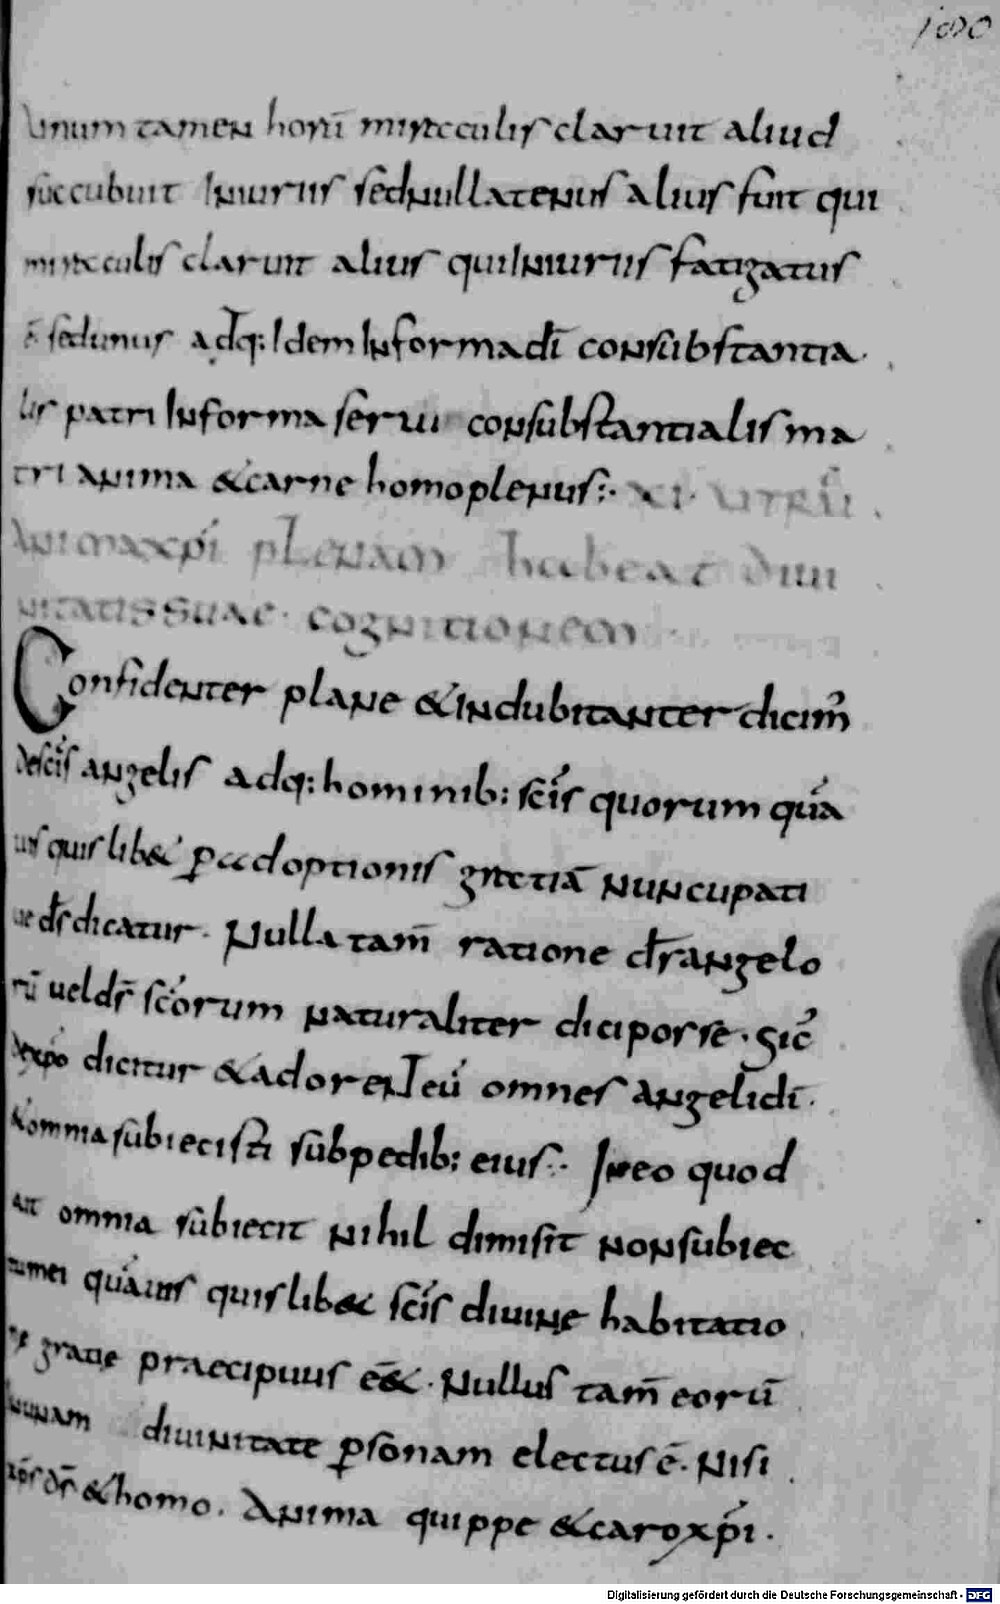 180
Unum tamen horū miraculis claruit aliud
succubuit Iniuriis sednullatenus alius fuit qui
miraculis claruit alius quiIniuriis fatigatus
ē sedunus adq: Idem Informadī consubstantia
lis patri Informa serui consubstantialis ma
tri anima &carne homoplenus:· XI· UTRŪ
Animaxpi plenam habeat diui
nitatissuae· cognitionem
Confidenter plane &indubitanter dicim̄
descīs angelis adq: hominib: scīs quorum quā
uis quislib& ꝑadoptionis gratiā nuncupati
ue ds̄dicatur. Nulla tam̄ ratione ds̄angelo
rū uel ds̄ scōrum naturaliter diciposse· Sic̄
dexpo dicitur &adorent eū omnes angelidī·
&omniasubiecisti subpedib: eius:· Ineo quod
ait omnia subiecit nihil dimisit nonsubiec
tumei quāuis quislib& scīs diuine habitatio
ne gratie praecipuus ē&· Nullus tam̄ eorū
Inunam diuinitate ꝑsonam electus ē· Nisi
xps ds̄ &homo. Anima quippe &caroxpi·
Digitalisierung gefördert durch die Deutsche Forschungsgemeinschaft - DFG